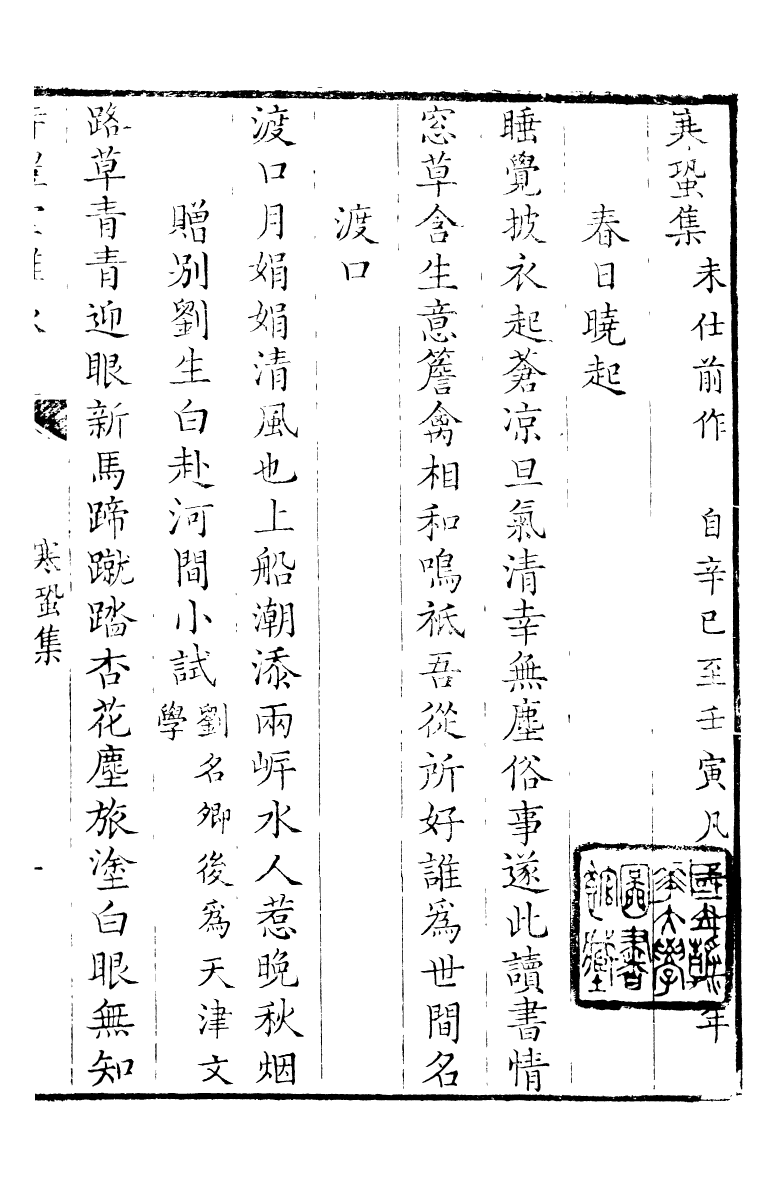 寒蛩集
未仕前作　自辛巳至壬寅凡年
春日曉起
睡覺披衣起蒼凉旦氣清幸無塵俗事遂此讀書情
窓草含生意簷禽相和鳴祗吾從所好誰爲世間名
渡口
渡口月娟娟清風也上船潮添兩岸水人惹晚秋烟
贈别劉生白赴河間小試
劉名卿後爲天津文
學
路草青青迎眼新馬蹄蹴踏杏花塵旅塗白眼無知
寒蛩集
一
圖書
館藏